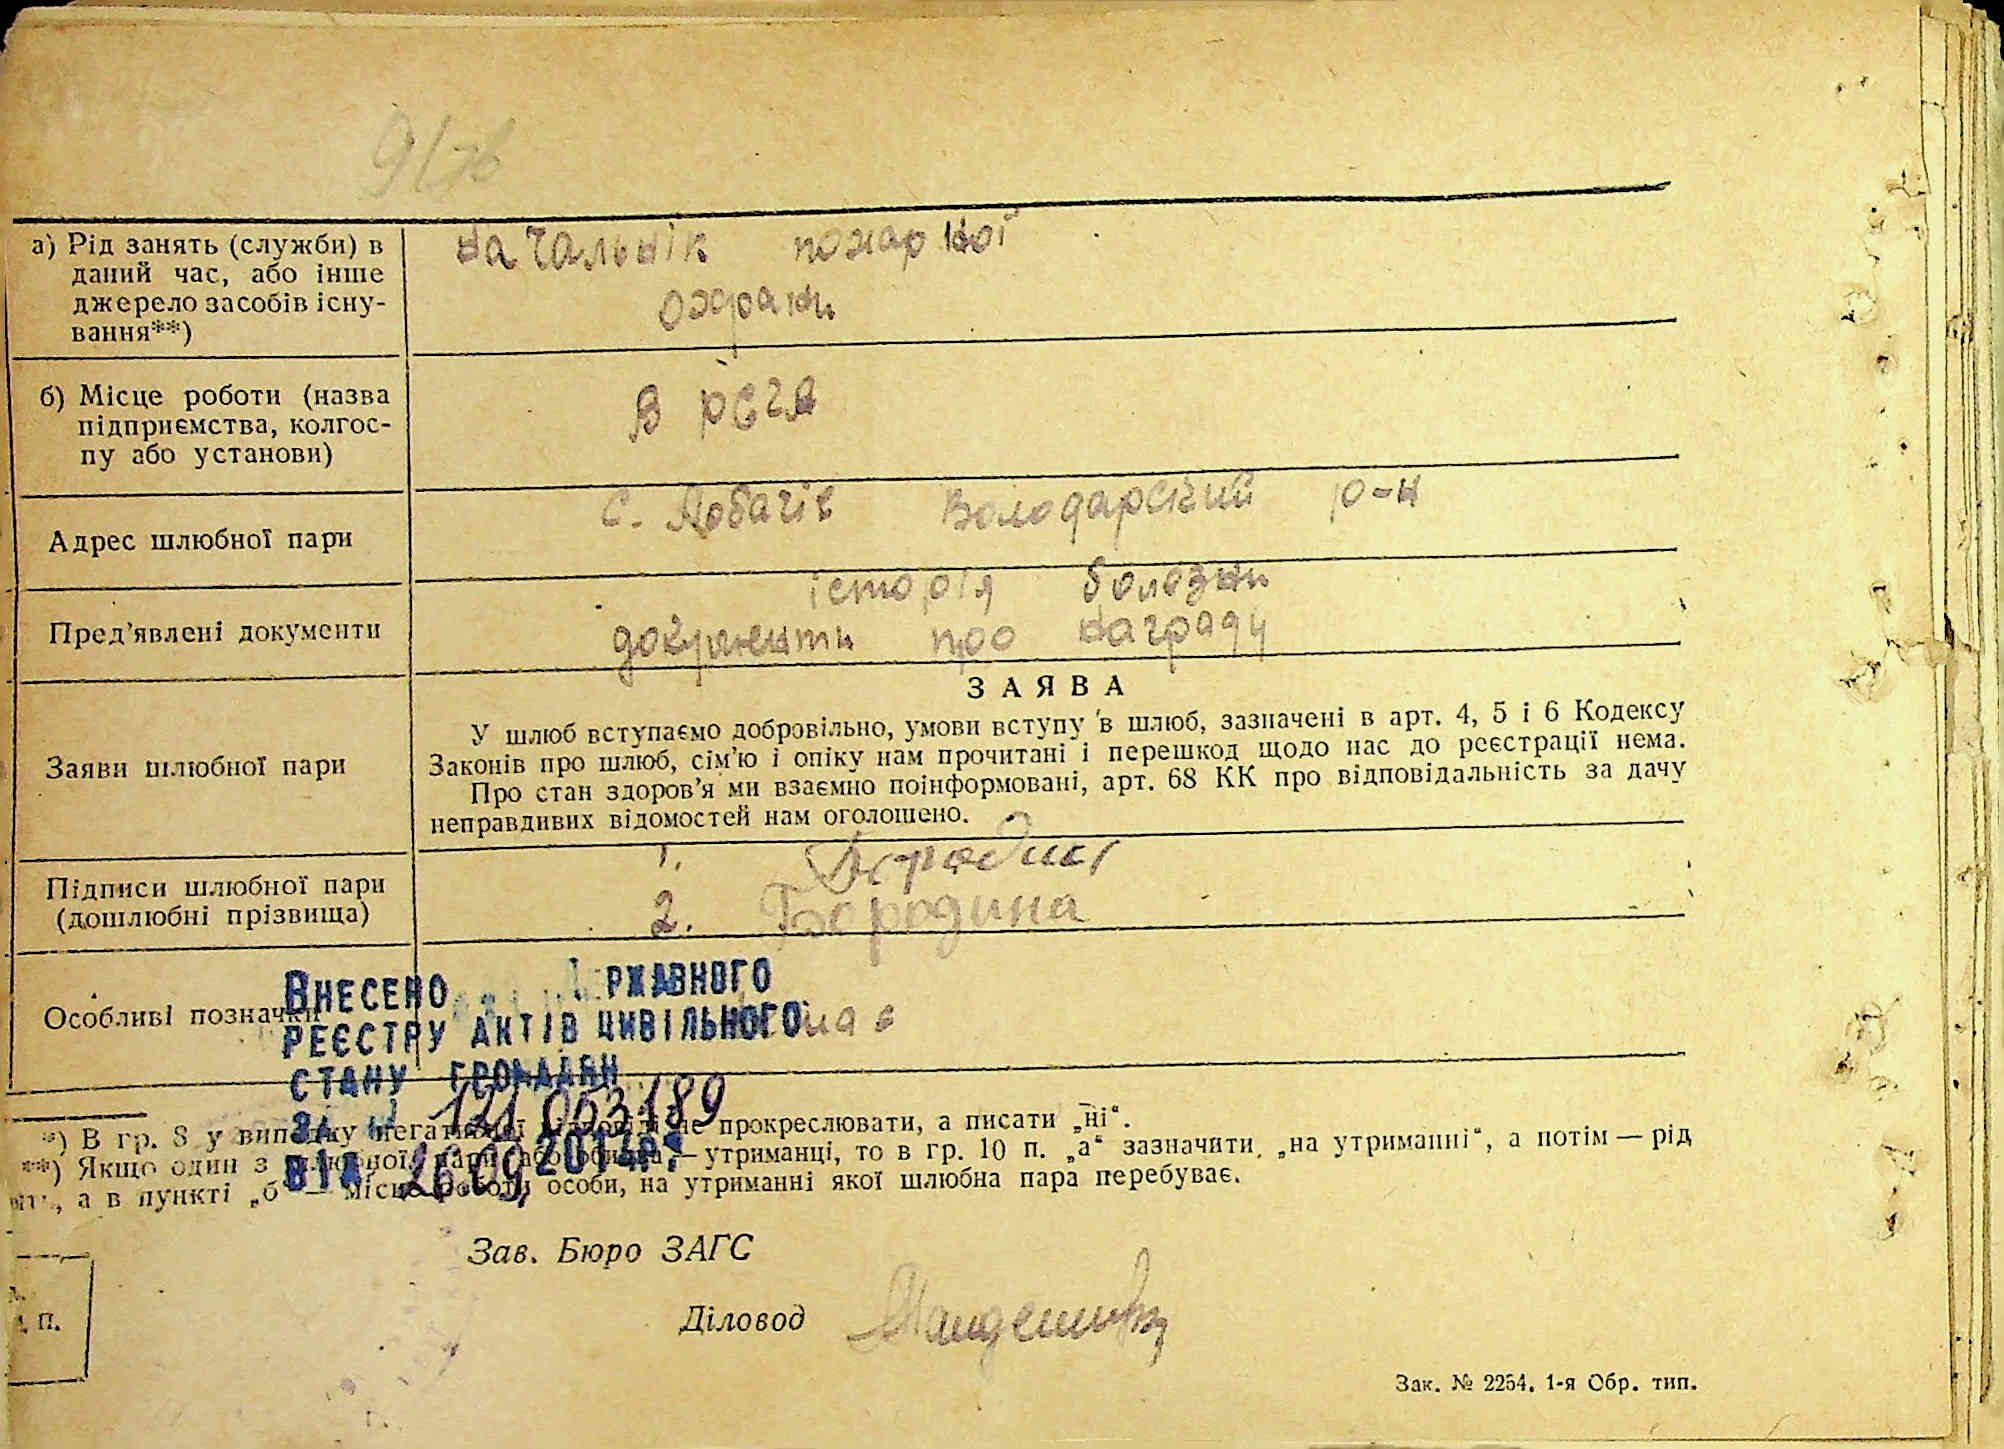 а) Рід занять (служби) в
даний час, або інше
джерело засобів існу-
вання**)
начальнік пожарної
охрани
б) Місце роботи (назва
підприємства, колгос-
пу або установи)
в
Адрес шлюбної пари
с. Лобачів Володарський р-н
Пред’явлені документи
історія болезни
документи про награду
Заяви шлюбної пари
ЗАЯВА
У шлюб вступаємо добровільно, умови вступу в шлюб, зазначені в арт. 4, 5 і 6 Кодексу
Законів про шлюб, сім’ю і опіку нам прочитані і перешкод щодо нас до реєстрації нема.
Про стан здоров’я ми взаємно поінформовані, арт. 68 КК про відповідальність за дачу
неправдивих відомостей нам оголошено.
Підписи шлюбної пари
(дошлюбні прізвища)
1.
2. Бородина
Особливі позначки
ВНЕСЕНО ДЕРЖАВНОГО
РЕЄСТРУ АКТІВ ЦИВІЛЬНОГО
СТАНУ ГРОМАДЯН
ЗА № 121053189
ВІД 26.09. 2014р.
*) В гр. 8 у випадку негативної відповіді не прокреслювати, а писати „ні“.
**) Якщо один з шлюбної пари або обидва — утриманці, то в гр. 10 п. „а“ зазначити „на утриманні“, а потім — рід
а в пункті „б“ — місце роботи особи, на утриманні якої шлюбна пара перебуває.
Зав. Бюро ЗАГС
Діловод
П.
Зак. № 2254. 1-я Обр. тип.